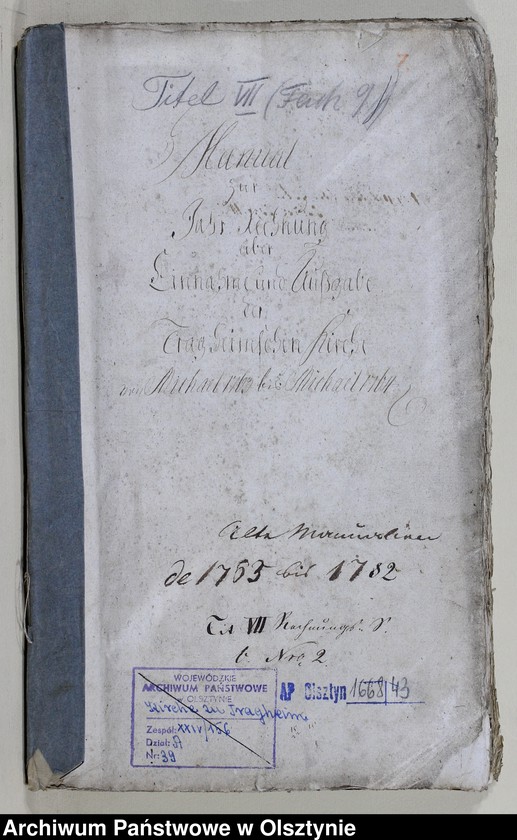 Titel VII (Fach 9)
Manual
zur
Jahr Rechnung
über
Einnahme und Außgabe
der
Tragheimschen Kirche
von Michael 1763 bis Michael 1764
Alte
de 1763 bis 1782
Tit VII Rechnungs S.
Nro 2
WOJEWÓDZKIE
ARCHIWUM PAŃSTWOWE
W OLSZTYNIE
Kirche zu Tragheim
Zespół: XXIV/156
Dział: A
Nr: 39
AP Olsztyn 1668/43
Archiwum Państwowe w Olsztynie